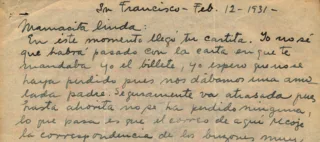 Sn Francisco - Feb. 12 - 1931 -
Mamacita linda:
En este momento llegó tu cartita. Yo no sé
que habrá pasado con la carta en que te
mandaba yo el billete, y yo espero que no se
haya perdido pues nos dábamos una amo
lada padre. Seguramente va atrasada pues
hasta ahorita no se ha perdido ninguna,
lo que pasa es que el correo de aquí recoje
la correspondencia de los buzones muy